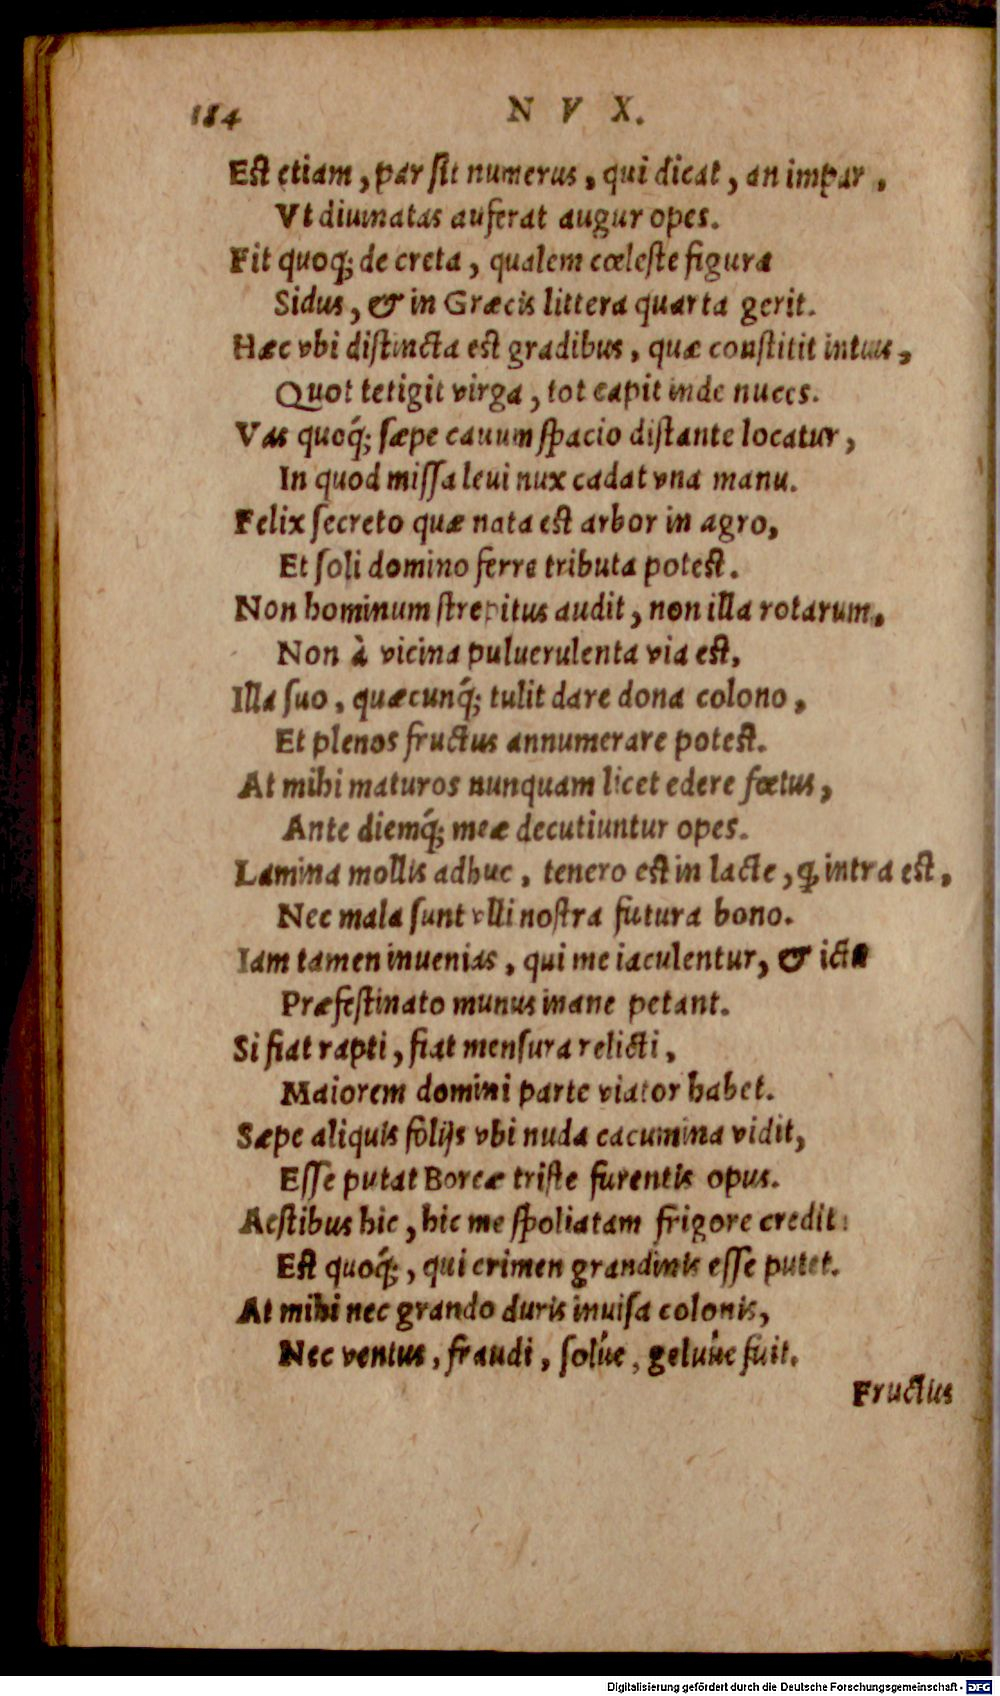 184 NVX.
Est etiam, par sit numerus, qui dicat, an impar,
Vt diuinatas auferat augur opes.
Fit quoq; de creta, qualem cœleste figura
Sidus, & in Græcis littera quarta gerit.
Hæc vbi distincta est gradibus, quæ constitit intus,
Quot tetigit virga, tot capit inde nuces.
Vas quoq́; sæpe cauum spacio distante locatur,
In quod missa leui nux cadat vna manu.
Felix secreto quæ nata est arbor in agro,
Et soli domino ferre tributa potest.
Non hominum strepitus audit, non illa rotarum,
Non à vicina puluerulenta via est,
Illa suo, quæcunq́; tulit dare dona colono,
Et plenos fructus annumerare potest.
At mihi maturos nunquam licet edere fœtus,
Ante diemq́; meæ decutiuntur opes.
Lamina mollis adhuc, tenero est in lacte, ꝙ intra est,
Nec mala sunt vlli nostra futura bono.
Iam tamen inuenias, qui me iaculentur, & ictu
Præfestinato munus inane petant.
Si fiat rapti, fiat mensura relicti,
Maiorem domini parte viator habet.
Sæpe aliquis folijs vbi nuda cacumina vidit,
Esse putat Boreæ triste furentis opus.
Aestibus hic, hic me spoliatam frigore credit:
Est quoq́;, qui crimen grandinis esse putet.
At mihi nec grando duris inuisa colonis,
Nec ventus, fraudi, solúe, gelúue fuit.
Fructus
Digitalisierung gefördert durch die Deutsche Forschungsgemeinschaft - DFG